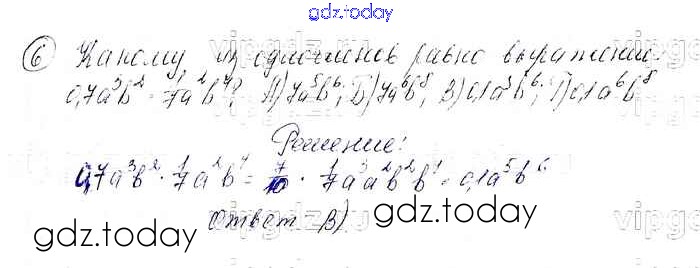 gdz.today
6 Какому из одночленов равно выражение
0,7a³b² · 1/7a²b⁴? А) 7a⁵b⁶; Б) 7a⁶b⁸; В) 0,1a⁵b⁶; Г) 0,1a⁶b⁸
Решение:
0,7a³b² · 1/7a²b⁴ = 7/10 · 1/7a³a²b²b⁴ = 0,1a⁵b⁶
Ответ В)
gdz.today gdz.today